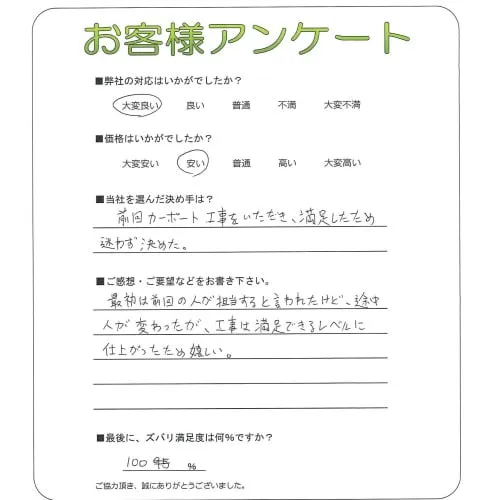 お客様アンケート
■弊社の対応はいかがでしたか？
大変良い 良い 普通 不満 大変不満
■価格はいかがでしたか？
大変安い 安い 普通 高い 大変高い
■当社を選んだ決め手は？
前回カーポート工事をいただき、満足したため
迷わず決めた。
■ご感想・ご要望などをお書き下さい。
最初は前回の人が担当すると言われたけど、途中
人が変わったが、工事は満足できるレベルに
仕上がったため嬉しい。
■最後に、ズバリ満足度は何％ですか？
100 %
ご協力頂き、誠にありがとうございました。